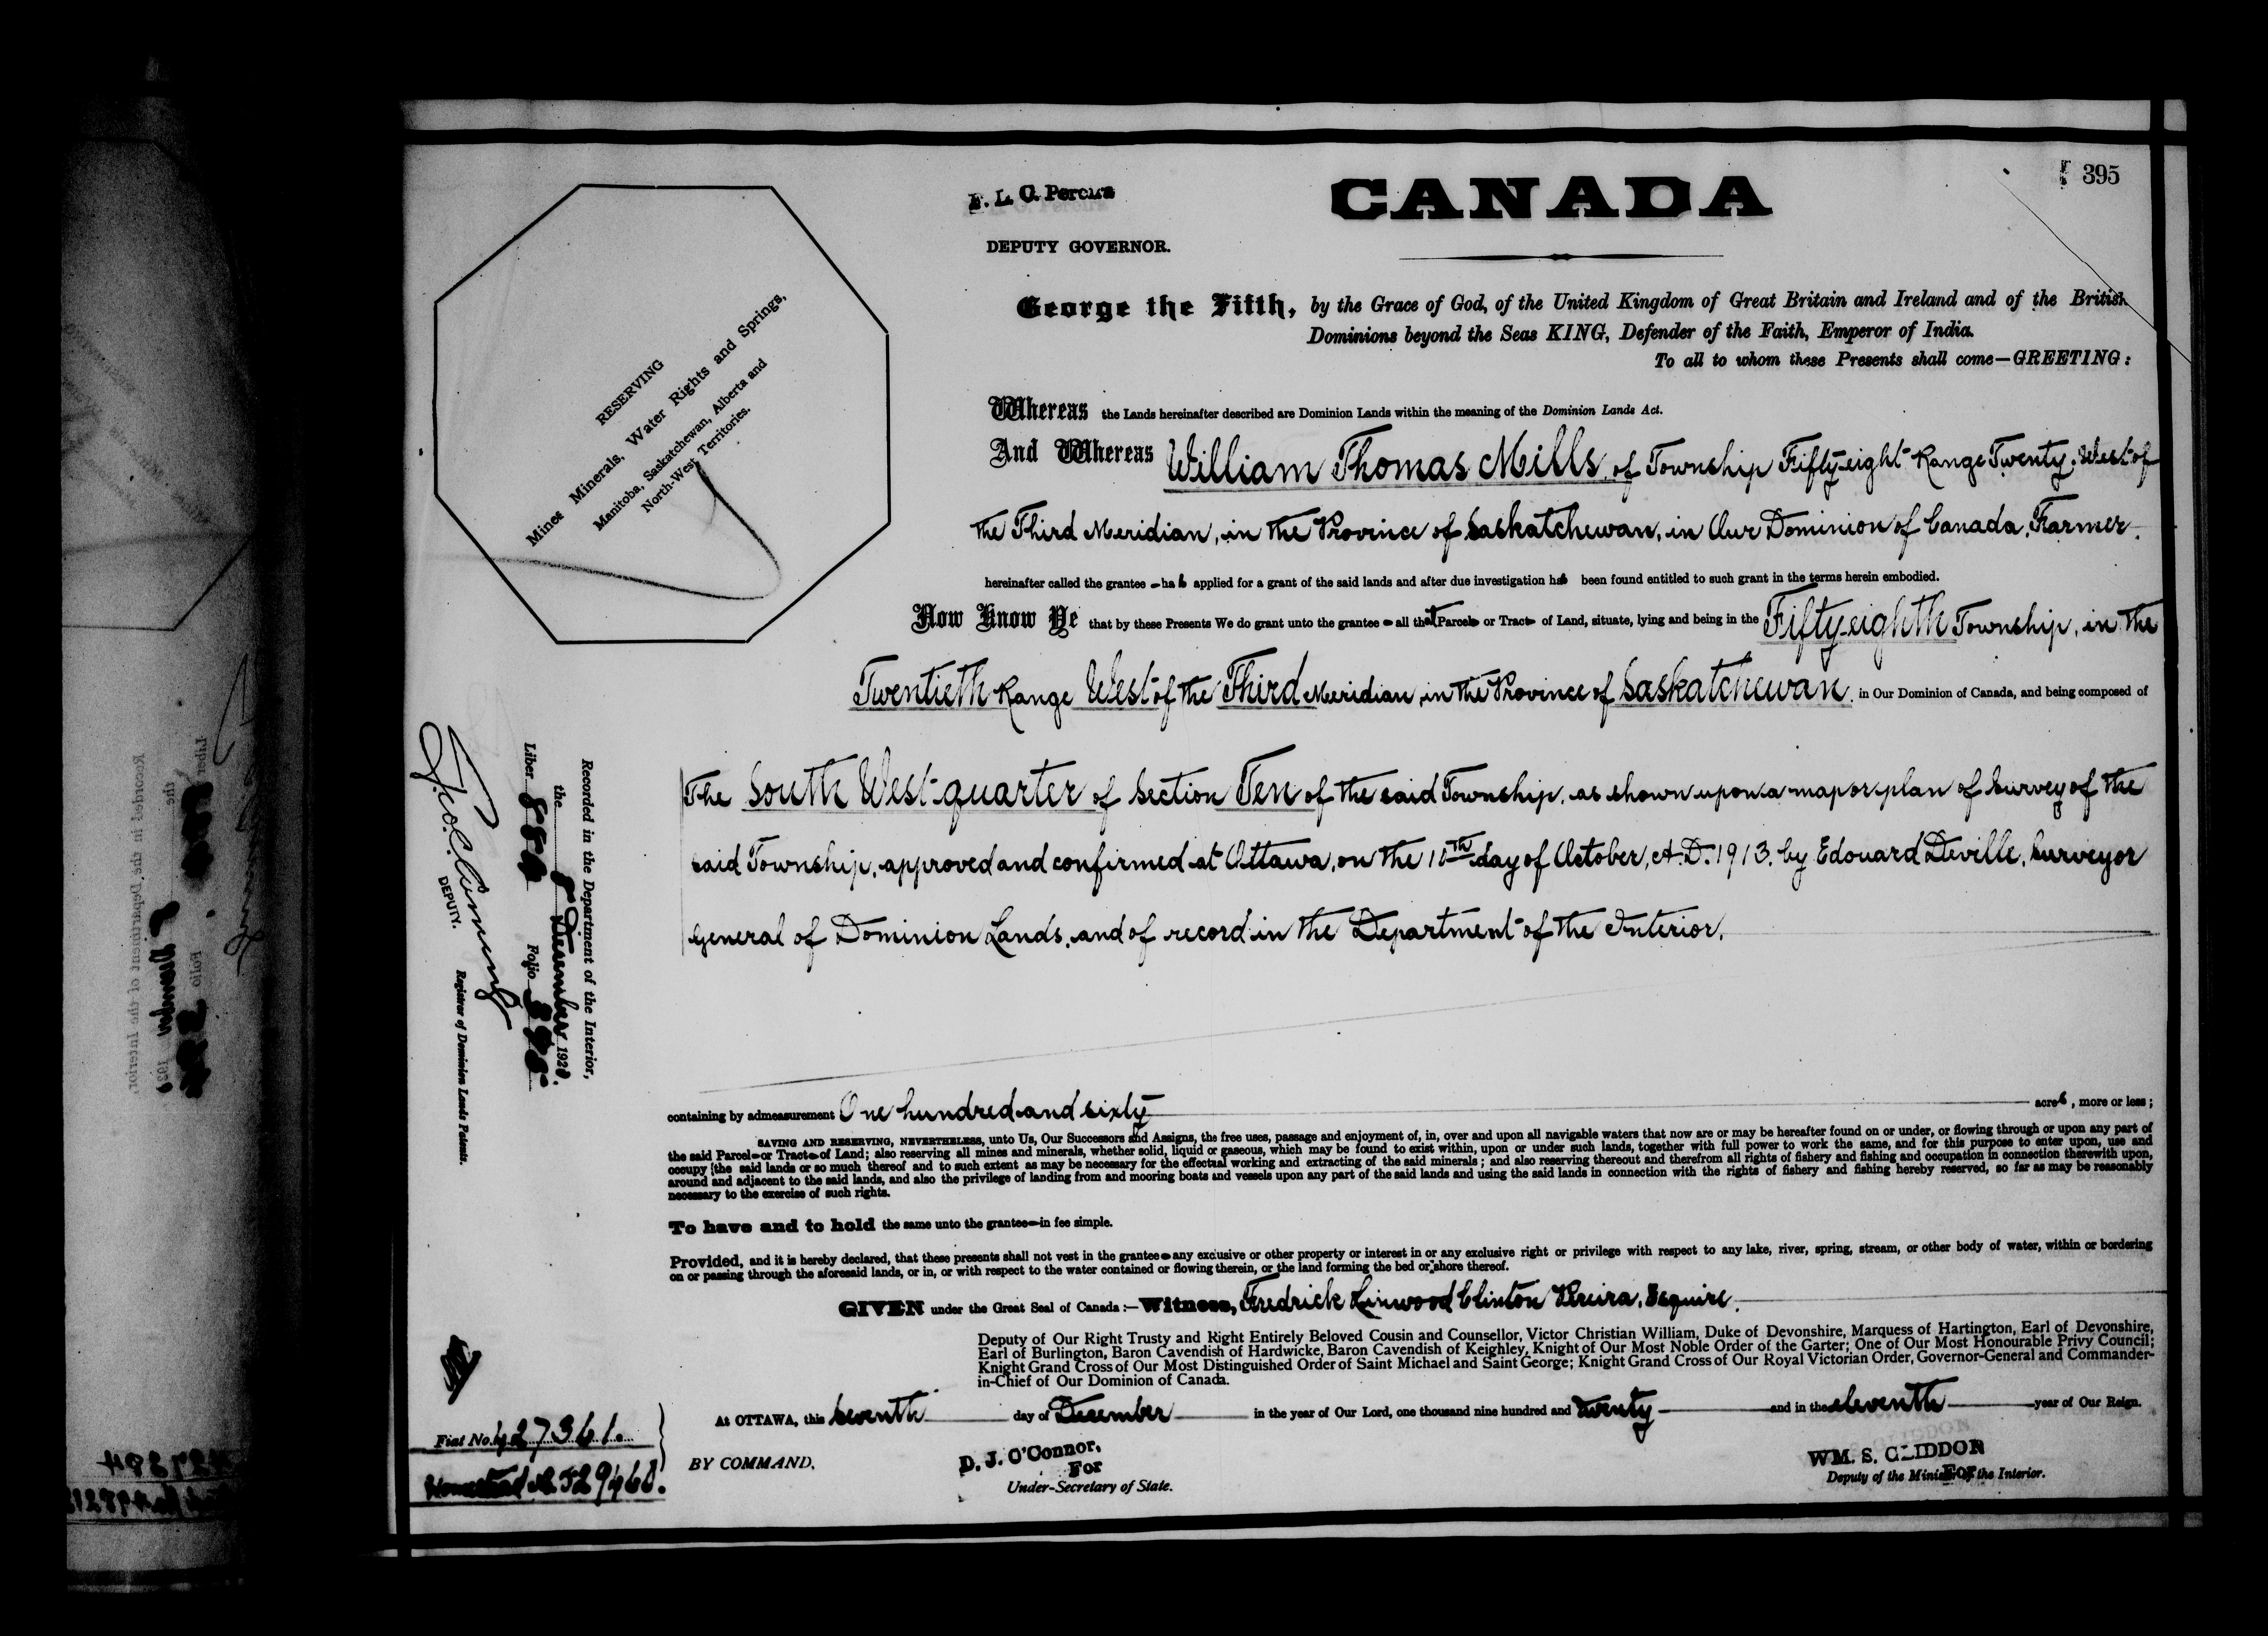 395
F. L. C. Pereira
DEPUTY GOVERNOR.
CANADA
RESERVING
Mines Minerals, Water Rights and Springs,
Manitoba, Saskatchewan, Alberta and
North-West Territories.
George the Fifth, by the Grace of God, of the United Kingdom of Great Britain and Ireland and of the British
Dominions beyond the Seas KING, Defender of the Faith, Emperor of India.
To all to whom these Presents shall come—GREETING:
Whereas the Lands hereinafter described are Dominion Lands within the meaning of the Dominion Lands Act.
And Whereas William Thomas Mills, of Township Fifty-eight Range Twenty, West of
the Third Meridian, in the Province of Saskatchewan, in Our Dominion of Canada, Farmer.
hereinafter called the grantee has applied for a grant of the said lands and after due investigation has been found entitled to such grant in the terms herein embodied.
Now Know Ye that by these Presents We do grant unto the grantee all that Parcel or Tract of Land, situate, lying and being in the Fifty-eighth Township, in the
Twentieth Range West of the Third Meridian, in the Province of Saskatchewan, in Our Dominion of Canada, and being composed of
The South West quarter of Section Ten of the said Township, as shown upon a map or plan of Survey of the
said Township, approved and confirmed at Ottawa, on the 10th day of October, A.D. 1913, by Edouard Deville, Surveyor
General of Dominion Lands, and of record in the Department of the Interior.
Recorded in the Department of the Interior,
the 8 December 1920.
Liber Folio 395
DEPUTY.
Registrar of Dominion Lands Patents.
containing by admeasurement One hundred and sixty acres, more or less;
SAVING AND RESERVING, NEVERTHELESS, unto Us, Our Successors and Assigns, the free uses, passage and enjoyment of, in, over and upon all navigable waters that now are or may be hereafter found on or under, or flowing through or upon any part of
the said Parcel or Tract of Land; also reserving all mines and minerals, whether solid, liquid or gaseous, which may be found to exist within, upon or under such lands, together with full power to work the same, and for this purpose to enter upon, use and
occupy the said lands or so much thereof and to such extent as may be necessary for the effectual working and extracting of the said minerals; and also reserving thereout and therefrom all rights of fishery and fishing and occupation in connection therewith upon,
around and adjacent to the said lands, and also the privilege of landing from and mooring boats and vessels upon any part of the said lands and using the said lands in connection with the rights of fishery and fishing hereby reserved, so far as may be reasonably
necessary to the exercise of such rights.
To have and to hold the same unto the grantee in fee simple.
Provided, and it is hereby declared, that these presents shall not vest in the grantee any exclusive or other property or interest in or any exclusive right or privilege with respect to any lake, river, spring, stream, or other body of water, within or bordering
on or passing through the aforesaid lands, or in, or with respect to the water contained or flowing therein, or the land forming the bed or shore thereof.
GIVEN under the Great Seal of Canada:—Witness, Fredrick Linwood Clinton Pereira, Esquire.
Deputy of Our Right Trusty and Right Entirely Beloved Cousin and Counsellor, Victor Christian William, Duke of Devonshire, Marquess of Hartington, Earl of Devonshire,
Earl of Burlington, Baron Cavendish of Hardwicke, Baron Cavendish of Keighley, Knight of Our Most Noble Order of the Garter; One of Our Most Honourable Privy Council;
Knight Grand Cross of Our Most Distinguished Order of Saint Michael and Saint George; Knight Grand Cross of Our Royal Victorian Order, Governor-General and Commander-
in-Chief of Our Dominion of Canada.
At OTTAWA, this Seventh day of December in the year of Our Lord, one thousand nine hundred and twenty and in the eleventh year of Our Reign.
Fiat No. 427361.
BY COMMAND,
D. J. O'Connor,
For
Under-Secretary of State.
WM. S. GLIDDON
For
Deputy of the Minister of the Interior.